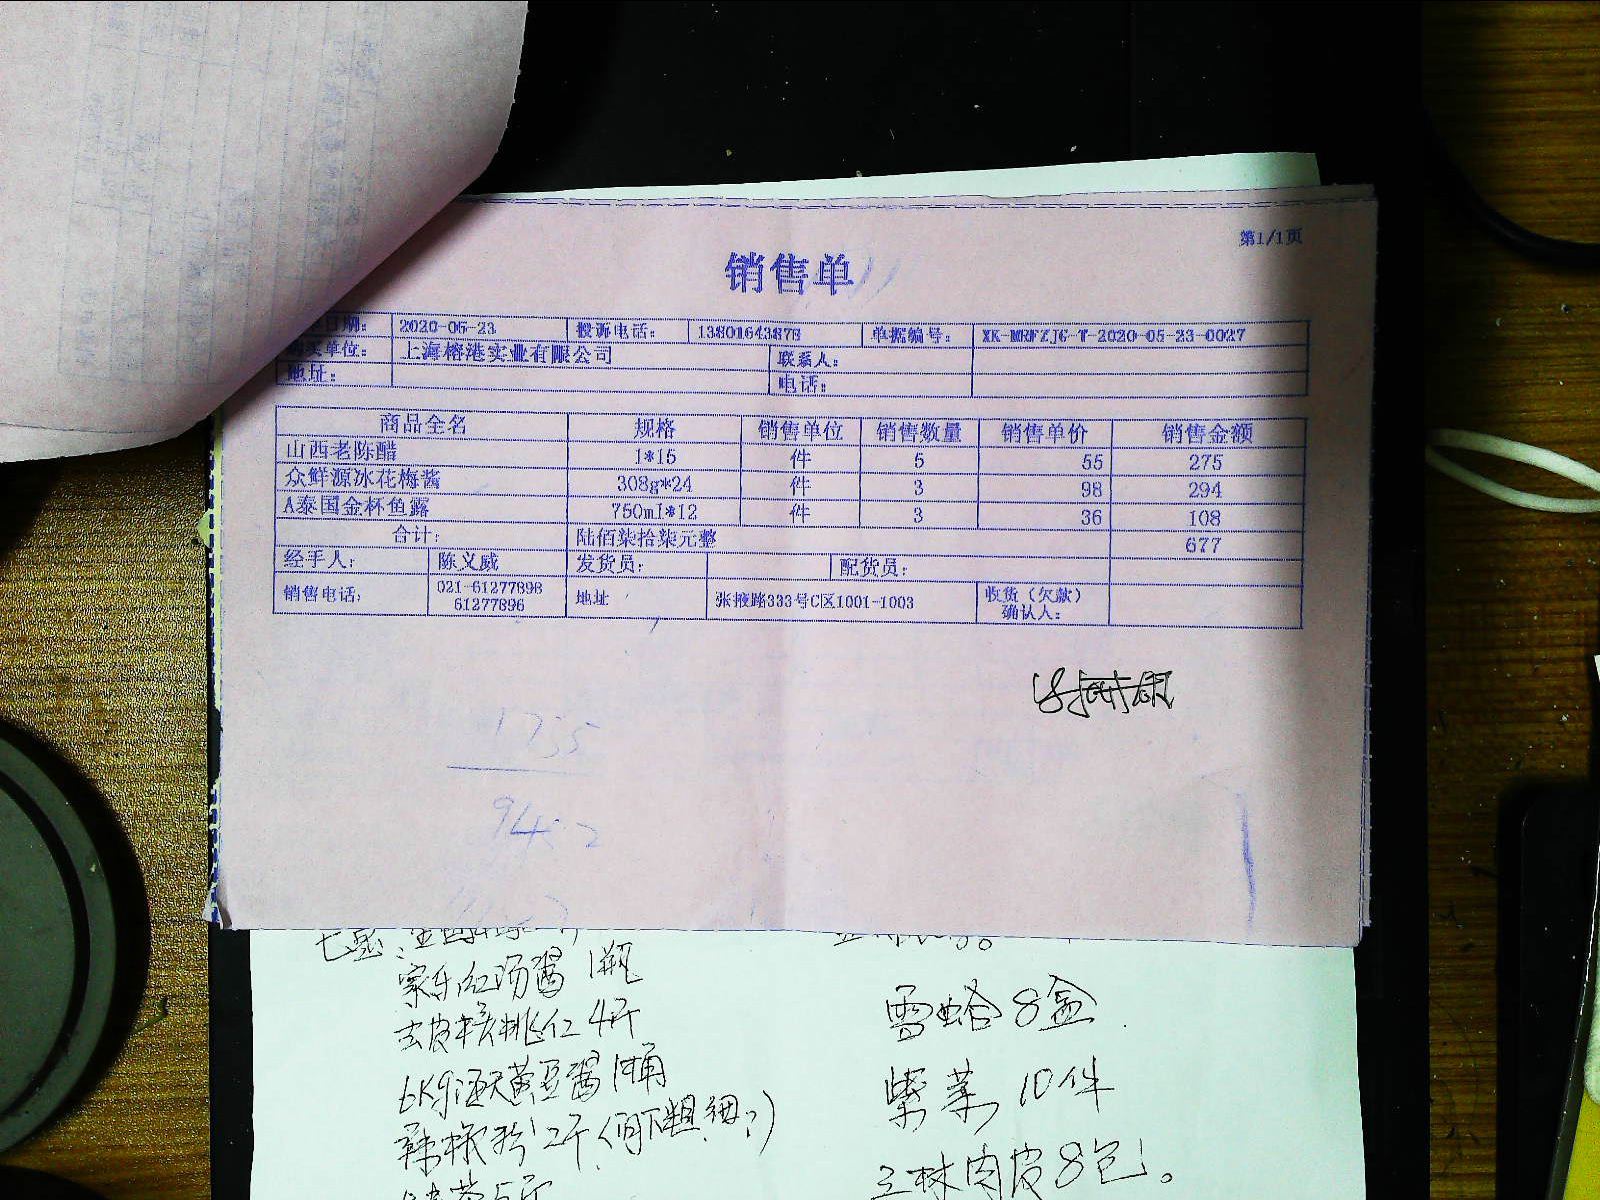 第1/1页
销售单
日期： 2020-05-23 投诉电话： 13801643878 单据编号： XK-MRFZJG-T-2020-05-23-0027
购买单位： 上海榕港实业有限公司 联系人：
地址： 电话：
商品全名 规格 销售单位 销售数量 销售单价 销售金额
山西老陈醋 1*15 件 5 55 275
众鲜源冰花梅酱 308g*24 件 3 98 294
A泰国金杯鱼露 750ml*12 件 3 36 108
合计： 陆佰柒拾柒元整 677
经手人： 陈义威 发货员： 配货员：
销售电话： 021-61277898 61277896 地址 张掖路333号C区1001-1003 收货（欠款）确认人：
1755
家乐红汤酱 1瓶
去皮核桃仁 4斤
6Kg海天黄豆酱 1桶
辣椒粉 2斤（问下粗.细?）
雪蛤 8盒
紫菜 10件
玉林肉皮 8包。